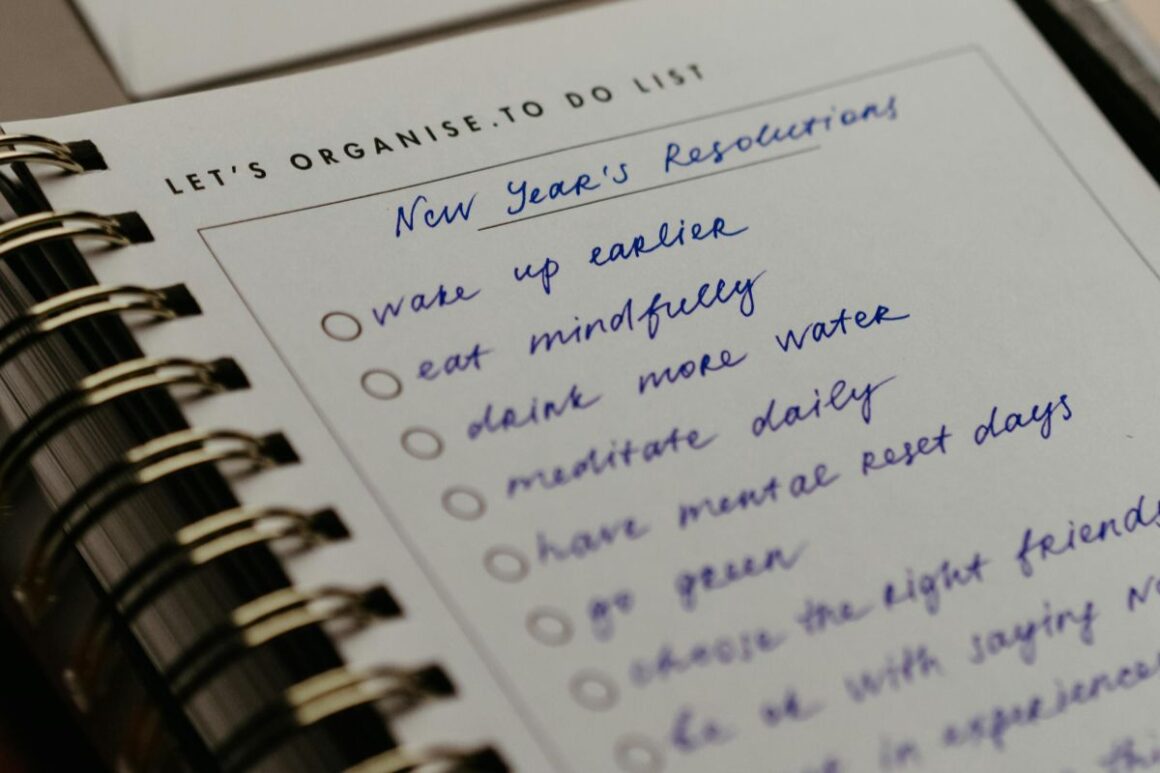 LET'S ORGANISE.TO DO LIST
New Year's Resolutions
wake up earlier
eat mindfully
drink more water
meditate daily
have mental reset days
go green
choose the right friends
be ok with saying No
in experiences